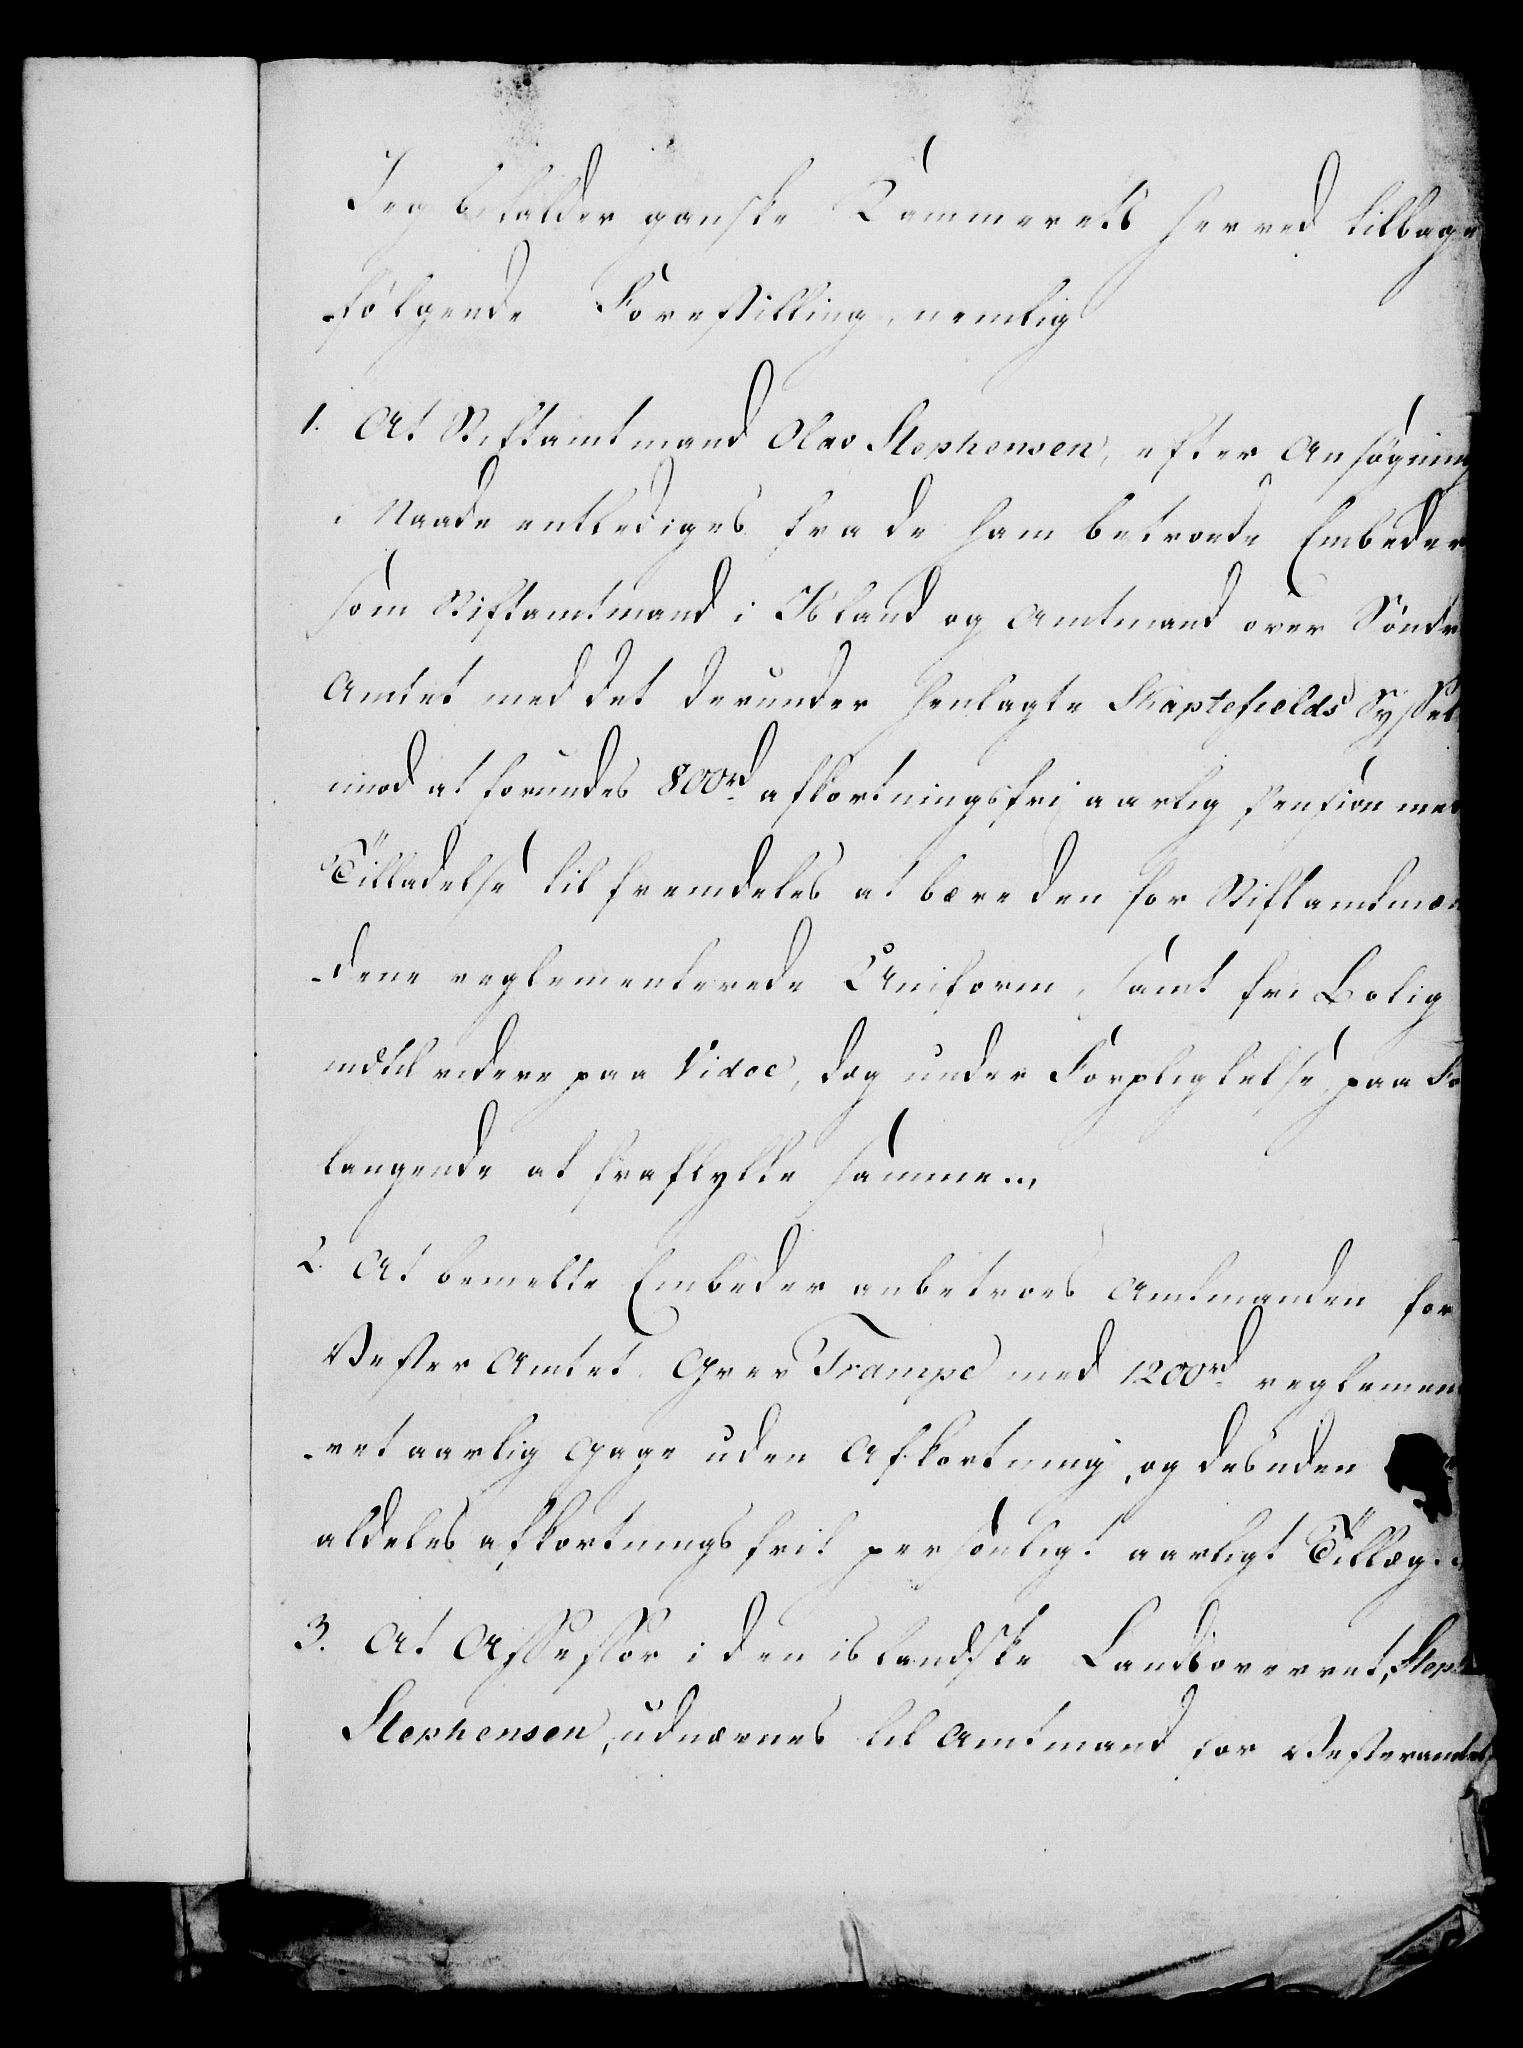 Jeg bifalder ganske Kammerets herved tilbage
følgende Forestilling, nemlig
1. At Stiftamtmand Olav Stephensen, efter Ansøgning
i Naade entlediges fra de ham betroede Embeder
som Stiftamtmand i Island og Amtmand over Sönder
Amtet med det derunder henlagte Skaptefields Syssel
imod at forundes 800rd afkortningsfri aarlig Pension med
Tilladelse til fremdeles at bære den for Stiftamtmæn
-dene reglementerede Uniform, samt fri Bolig
indtil videre paa Vidoe, dog under Forpligtelse paa Fo
langende at fraflytte samme.
2. At bemelte Embeder anbetroes Amtmanden for
Vester Amtet Grev Trampe med 1200rd reglemen
-ret aarlig Gage uden Afkortning, og desuden
aldeles afkortningsfrit personligt aarligt Tillæg.
3. At Assessor i den islandske Landsoverret, Steph
Stephensen, udnævnes til Amtmand for Vesteramtet,